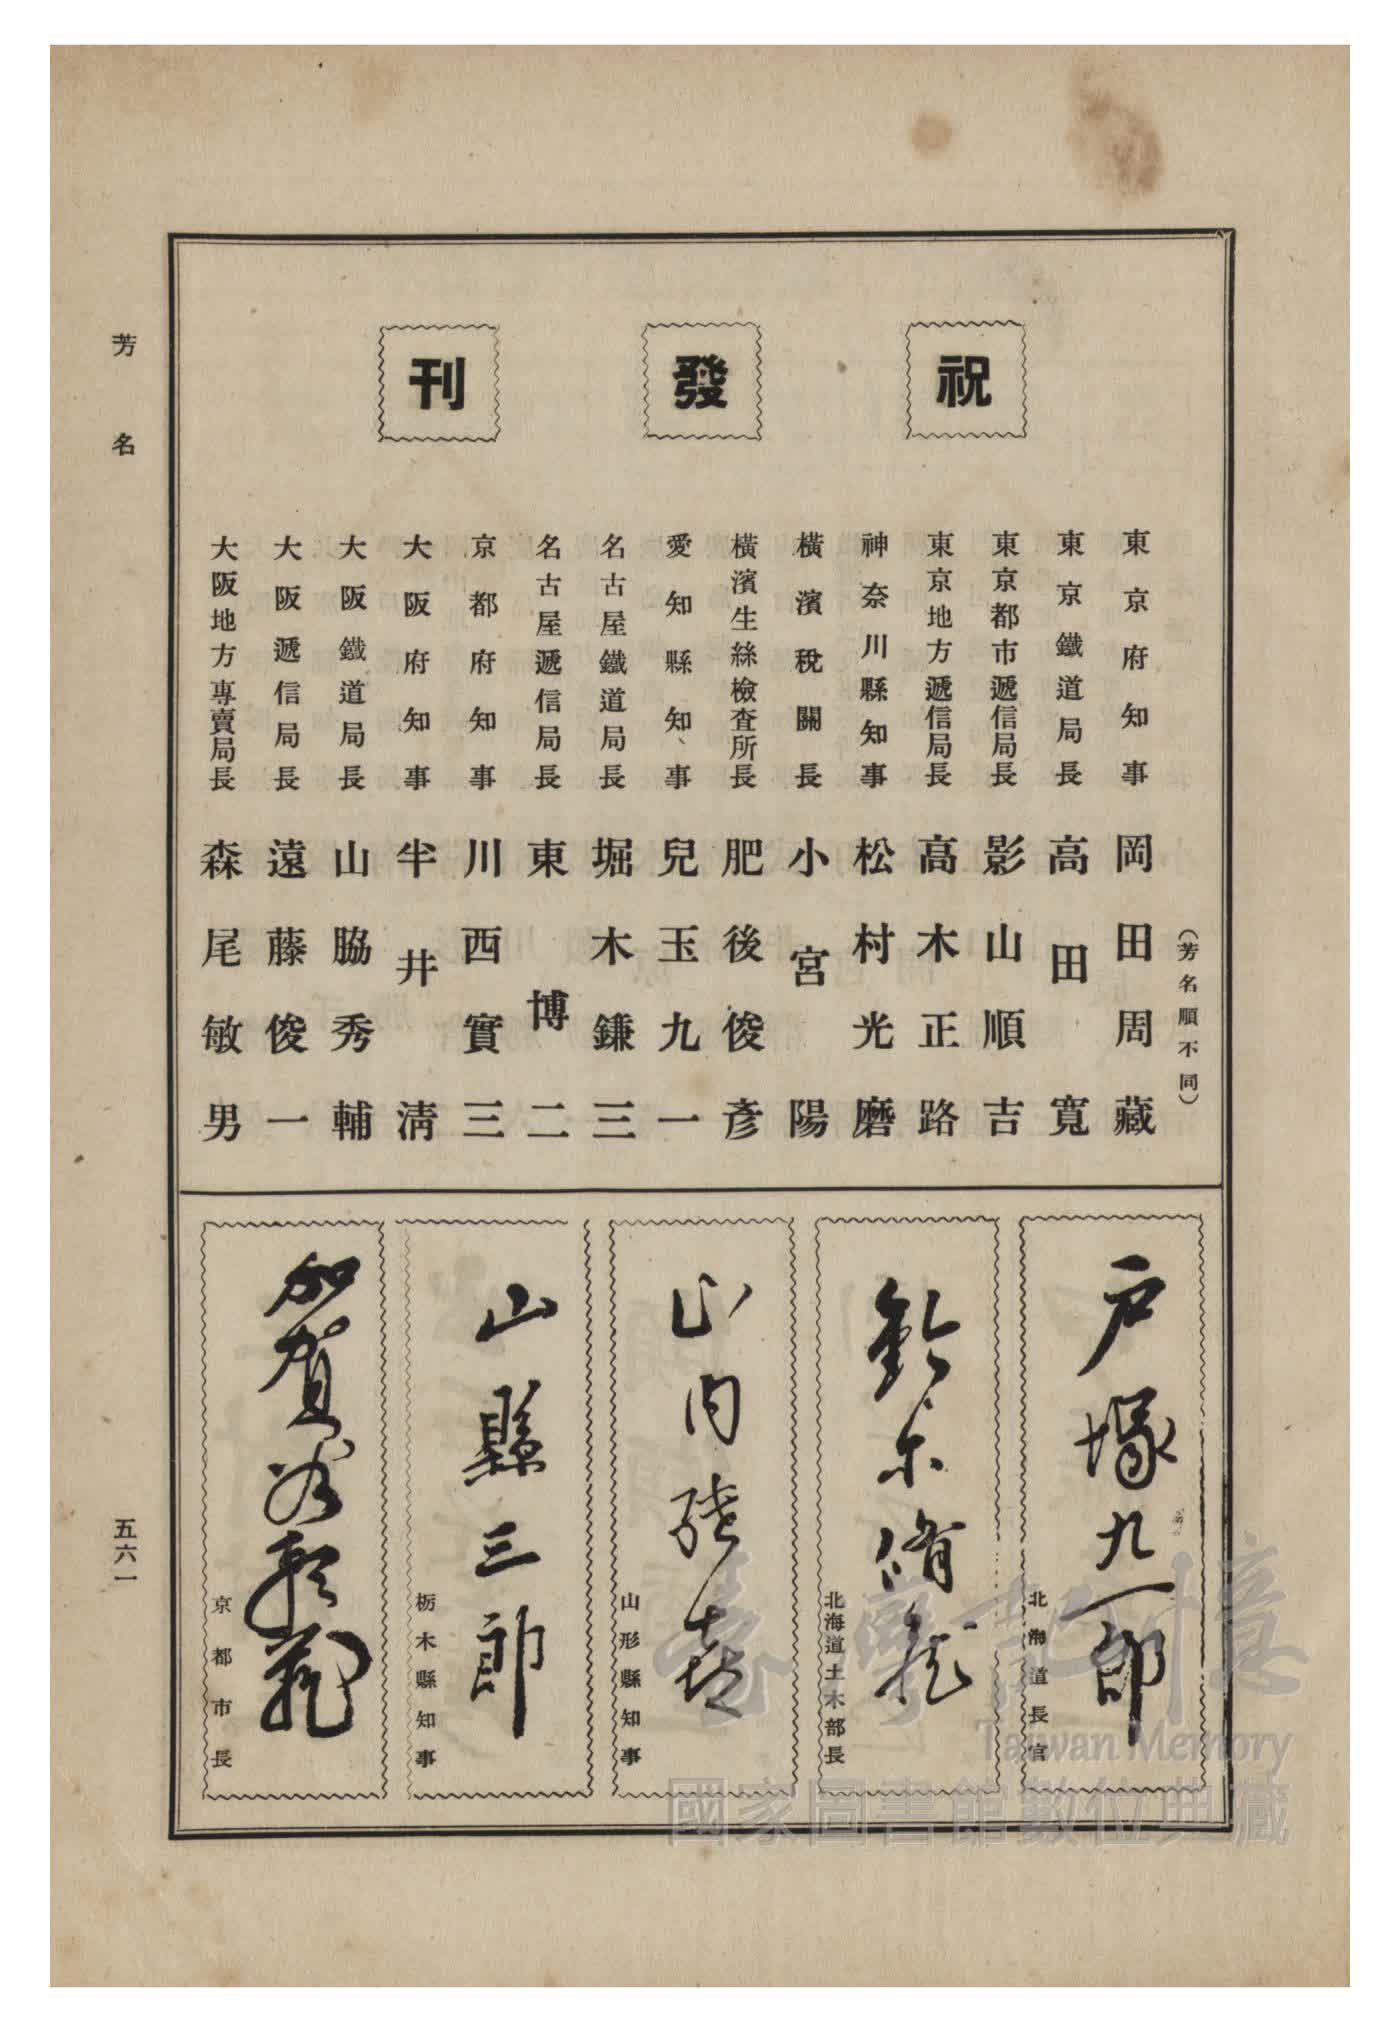 祝發刊
（芳名順不同）
東京府知事 岡田周藏
東京鐵道局長 高田寬
東京都市遞信局長 影山順吉
東京地方遞信局長 高木正路
神奈川縣知事 松村光磨
橫濱稅關長 小宮陽
橫濱生絲檢查所長 肥後俊彥
愛知縣知事 兒玉九一
名古屋鐵道局長 堀木鎌三
名古屋遞信局長 東博二
京都府知事 川西實三
大阪府知事 半井淸
大阪鐵道局長 山脇秀輔
大阪遞信局長 遠藤俊一
大阪地方專賣局長 森尾敏男
戶塚九一郎
北海道長官
北海道土木部長
山內
山形縣知事
山縣三郎
栃木縣知事
加賀谷
京都市長
芳名
五六一
臺灣記憶
Taiwan Memory
國家圖書館數位典藏